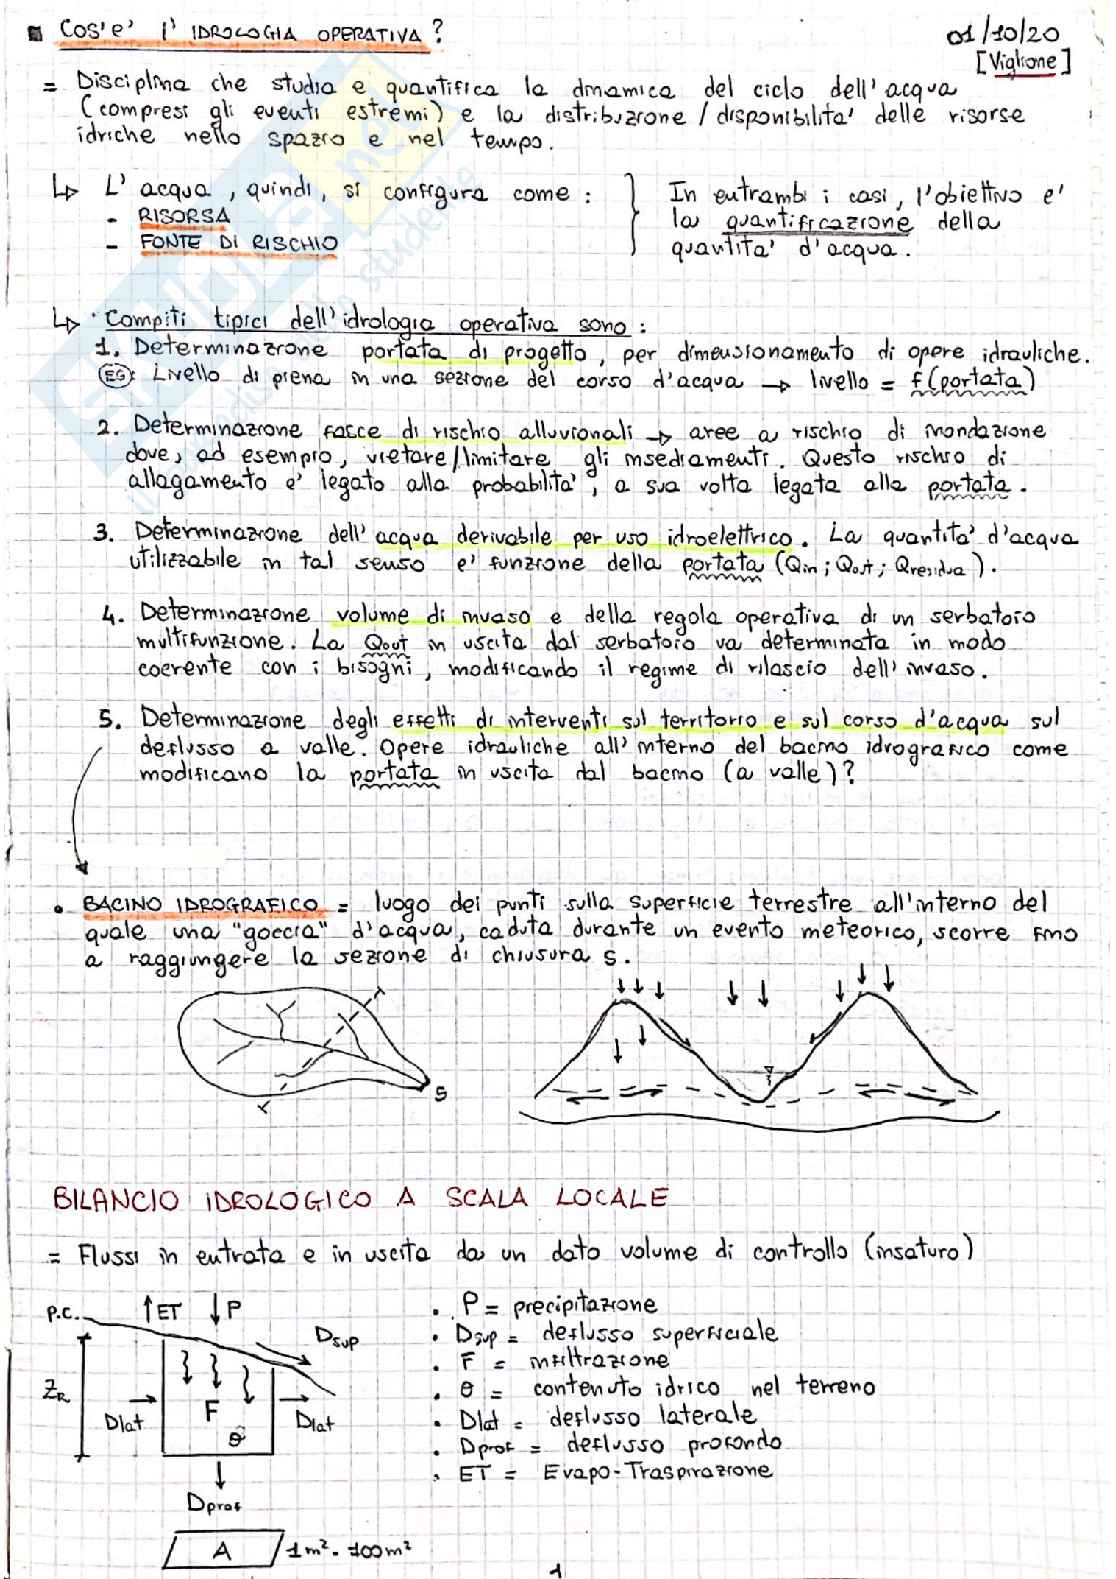 Cos'e' l' IDROLOGIA OPERATIVA?
01/10/20
[Viglione]
= Disciplina che studia e quantifica la dinamica del ciclo dell'acqua
(compresi gli eventi estremi) e la distribuzione / disponibilita' delle risorse
idriche nello spazio e nel tempo.
↳ L' acqua, quindi, si configura come:
- RISORSA
- FONTE DI RISCHIO
In entrambi i casi, l'obiettivo e'
la quantificazione della
quantita' d'acqua.
↳ Compiti tipici dell'idrologia operativa sono:
1. Determinazione portata di progetto, per dimensionamento di opere idrauliche.
(EG): Livello di piena in una sezione del corso d'acqua → livello = f(portata)
2. Determinazione fasce di rischio alluvionali → aree a rischio di inondazione
dove, ad esempio, vietare/limitare gli insediamenti. Questo rischio di
allagamento e' legato alla probabilita', a sua volta legata alla portata.
3. Determinazione dell'acqua derivabile per uso idroelettrico. La quantita' d'acqua
utilizzabile in tal senso e' funzione della portata (Qin; Qout; Qresidua).
4. Determinazione volume di invaso e della regola operativa di un serbatoio
multifunzione. La Qout in uscita dal serbatoio va determinata in modo
coerente con i bisogni, modificando il regime di rilascio dell'invaso.
5. Determinazione degli effetti di interventi sul territorio e sul corso d'acqua sul
deflusso a valle. Opere idrauliche all'interno del bacino idrografico come
modificano la portata in uscita dal bacino (a valle)?
• BACINO IDROGRAFICO = luogo dei punti sulla superficie terrestre all'interno del
quale una "goccia" d'acqua, caduta durante un evento meteorico, scorre fino
a raggiungere la sezione di chiusura S.
S
BILANCIO IDROLOGICO A SCALA LOCALE
= Flussi in entrata e in uscita da un dato volume di controllo (insaturo)
P.C.
↑ET ↓P
Dsup
ZR
Dlat
F
θ
Dlat
Dprof
A
1m² - 100m²
• P = precipitazione
• Dsup = deflusso superficiale
• F = infiltrazione
• θ = contenuto idrico nel terreno
• Dlat = deflusso laterale
• Dprof = deflusso profondo
• ET = Evapo-Traspirazione
1